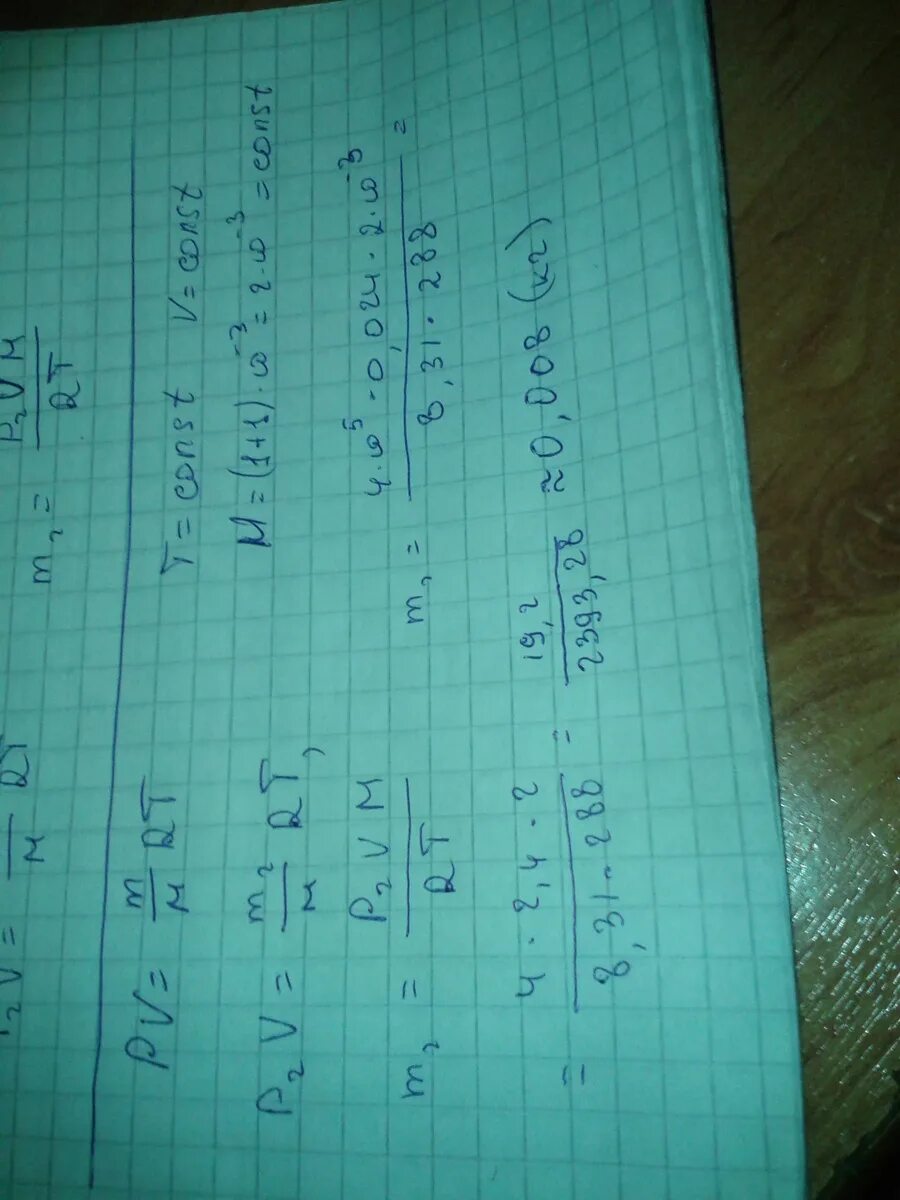 P₂V = — RT
M
m₂ = P₂VM / RT
PV = m/M RT
T = const V = const
P₂V = m₂/M RT,
M = (1+1)·10⁻³ = 2·10⁻³ = const
m₂ = P₂VM / RT
m₂ = 4·10⁵·0,024·2·10⁻³ / 8,31·288 =
= 4·2,4·2 / 8,31·288 = 19,2 / 2393,28 ≈ 0,008 (кг)